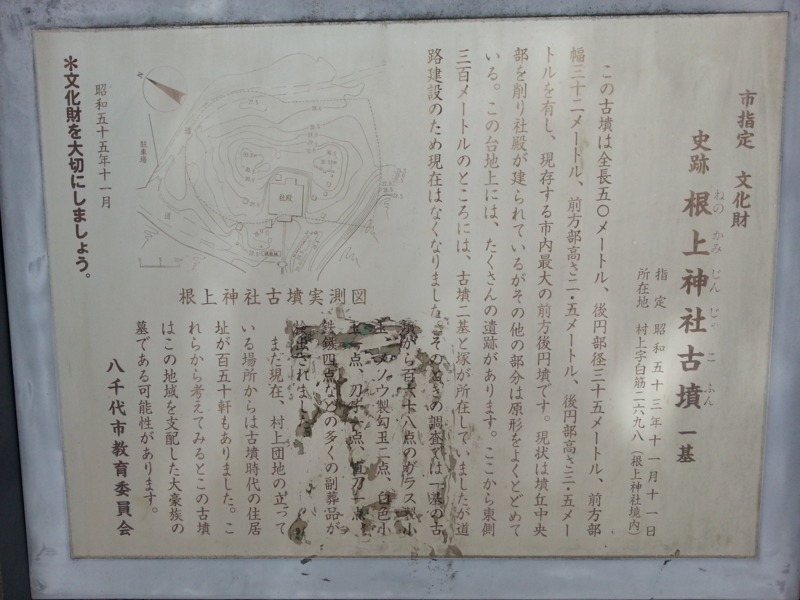 市指定 文化財
史跡 根上神社古墳 一基
ねの かみ じん じゃ こ ふん
指定 昭和五十三年十一月十一日
所在地 村上字白筋一六九八（根上神社境内）
この古墳は全長五〇メートル、後円部径三十五メートル、前方部
幅三十二メートル、前方部高さ二・五メートル、後円部高さ三・五メー
トルを有し、現存する市内最大の前方後円墳です。現状は墳丘中央
部を削り社殿が建られているがその他の部分は原形をよくとどめて
いる。この台地上には、たくさんの遺跡があります。ここから東側
三百メートルのところには、古墳二基と塚が所在していましたが道
路建設のため現在はなくなりました。そのときの調査では一基の古
墳から百六十八点のガラス製小
玉、メノウ製勾玉二点、白色小
玉一点、刀子一点、直刀一点、
鉄鏃四点などの多くの副葬品が
検出されました。
また現在、村上団地の立って
いる場所からは古墳時代の住居
址が百五十軒もありました。こ
れらから考えてみるとこの古墳
はこの地域を支配した大豪族の
墓である可能性があります。
八千代市教育委員会
根上神社古墳実測図
社殿
道
道
駐車場
昭和五十五年十一月
＊文化財を大切にしましょう。